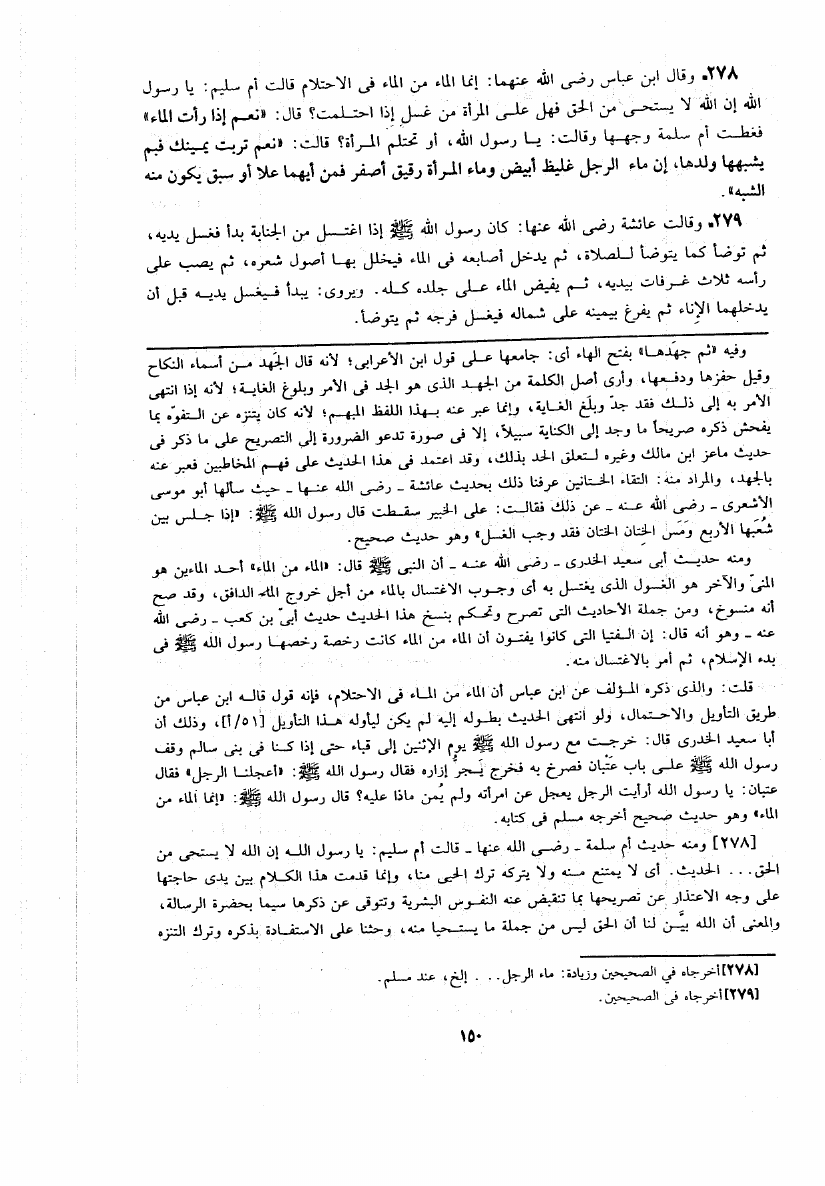 ٢٧٨ـ وقال ابن عباس رضى الله عنهما: إنما الماء من الماء فى الاحتلام قالت أم سليم: يا رسول
الله إن الله لا يستحى من الحق فهل على المرأة من غسل إذا احتلمت؟ قال: «نعم إذا رأت الماء»
فغطت أم سلمة وجهها وقالت: يا رسول الله، أو تحتلم المرأة؟ قالت: «نعم تربت يمينك فبم
يشبهها ولدها، إن ماء الرجل غليظ أبيض وماء المرأة رقيق أصفر فمن أيهما علا أو سبق يكون منه
الشبه».
٢٧٩ـ وقالت عائشة رضى الله عنها: كان رسول الله ﷺ إذا اغتسل من الجنابة بدأ فغسل يديه،
ثم توضأ كما يتوضأ للصلاة، ثم يدخل أصابعه فى الماء فيخلل بها أصول شعره، ثم يصب على
رأسه ثلاث غرفات بيديه، ثم يفيض الماء على جلده كله. ويروى: يبدأ فيغسل يديه قبل أن
يدخلهما الإناء ثم يفرغ بيمينه على شماله فيغسل فرجه ثم يتوضأ.
وفيه «ثم جهَدها» بفتح الهاء أى: جامعها على قول ابن الأعرابى؛ لأنه قال الجَهد من أسماء النكاح
وقيل حفزها ودفعها، وأرى أصل الكلمة من الجهد الذى هو الجد فى الأمر وبلوغ الغاية؛ لأنه إذا انتهى
الأمر به إلى ذلك فقد جدّ وبلَغ الغاية، وإنما عبر عنه بهذا اللفظ المبهم؛ لأنه كان يتنزه عن التفوّه بما
يفحش ذكره صريحاً ما وجد إلى الكناية سبيلاً، إلا فى صورة تدعو الضرورة إلى التصريح على ما ذكر فى
حديث ماعز ابن مالك وغيره لتعلق الحد بذلك، وقد اعتمد فى هذا الحديث على فهم المخاطبين فعبر عنه
بالجهد، والمراد منه: التقاء الختانين عرفنا ذلك بحديث عائشة ـ رضى الله عنها ـ حيث سألها أبو موسى
الأشعرى ـ رضى الله عنه ـ عن ذلك فقالت: على الخبير سقطت قال رسول الله ﷺ: «إذا جلس بين
شُعَبها الأربع ومَس الختان الختان فقد وجب الغسل» وهو حديث صحيح.
ومنه حديث أبى سعيد الخدرى ـ رضى الله عنه ـ أن النبى ﷺ قال: «الماء من الماء» أحد الماءين هو
المنىّ والآخر هو الغسول الذى يغتسل به أى وجوب الاغتسال بالماء من أجل خروج الماء الدافق، وقد صح
أنه منسوخ، ومن جملة الأحاديث التى تصرح وتحكم بنسخ هذا الحديث حديث أبىّ بن كعب ـ رضى الله
عنه ـ وهو أنه قال: إن الفتيا التى كانوا يفتون أن الماء من الماء كانت رخصة رخصها رسول الله ﷺ فى
بدء الإسلام، ثم أمر بالاغتسال منه.
قلت: والذى ذكره المؤلف عن ابن عباس أن الماء من الماء فى الاحتلام، فإنه قول قاله ابن عباس من
طريق التأويل والاحتمال، ولو انتهى الحديث بطوله إليه لم يكن ليأوله هذا التأويل [٥١/أ]، وذلك أن
أبا سعيد الخدرى قال: خرجت مع رسول الله ﷺ يوم الإثنين إلى قباء حتى إذا كنا فى بنى سالم وقف
رسول الله ﷺ على باب عتبان فصرخ به فخرج يَجرُّ إزاره فقال رسول الله ﷺ: «أعجلنا الرجل» فقال
عتبان: يا رسول الله أرأيت الرجل يعجل عن امرأته ولم يُمن ماذا عليه؟ قال رسول الله ﷺ: «إنما الماء من
الماء» وهو حديث صحيح أخرجه مسلم فى كتابه.
[٢٧٨] ومنه حديث أم سلمة ـ رضى الله عنها ـ قالت أم سليم: يا رسول الله إن الله لا يستحى من
الحق... الحديث. أى لا يمتنع منه ولا يتركه ترك الحيى منا، وإنما قدمت هذا الكلام بين يدى حاجتها
على وجه الاعتذار عن تصريحها بما تنقبض عنه النفوس البشرية وتتوقى عن ذكرها سيما بحضرة الرسالة،
والمعنى أن الله بيَّن لنا أن الحق ليس من جملة ما يستحيا منه، وحثنا على الاستفادة بذكره وترك التنزه
[٢٧٨] أخرجاه في الصحيحين وزيادة: ماء الرجل... إلخ، عند مسلم.
[٢٧٩] أخرجاه فى الصحيحين.
١٥٠